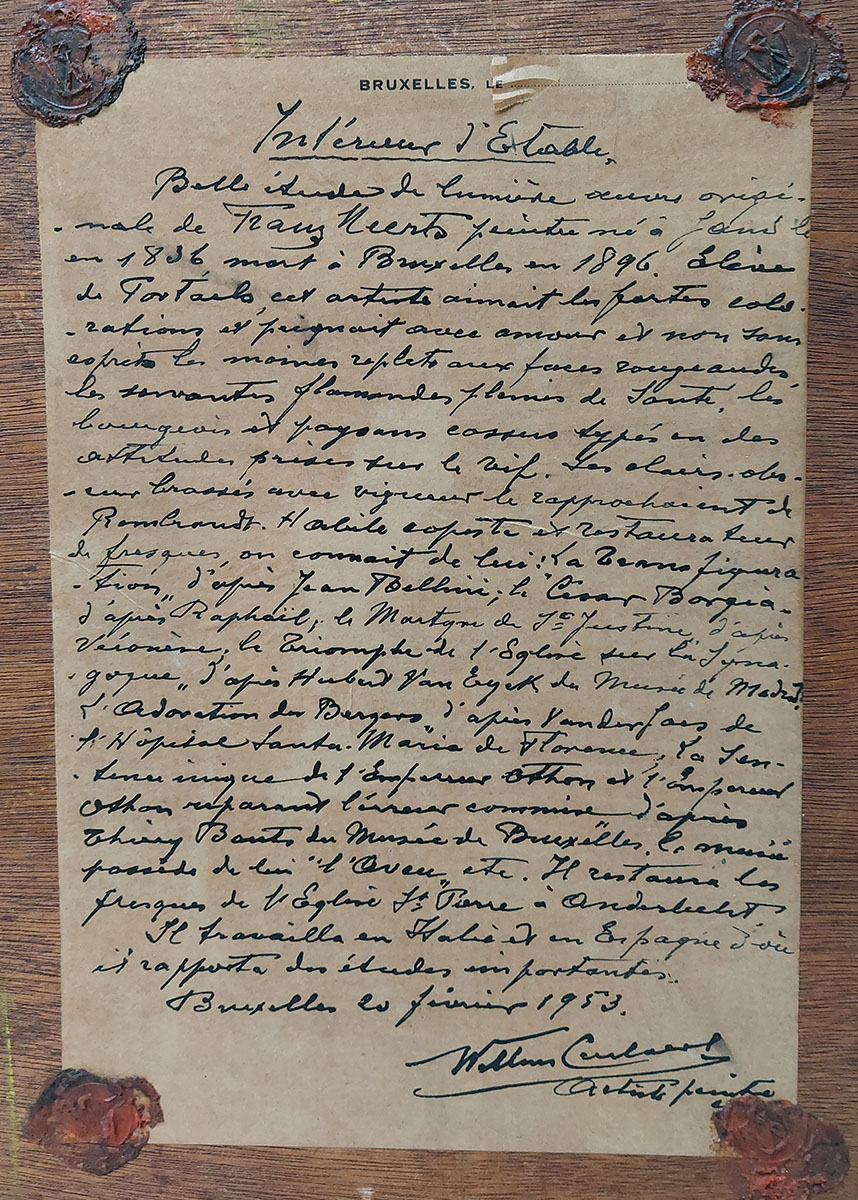 BRUXELLES, LE
Intérieur d'Etable.
Belle étude de lumière œuvre origi-
-nale de Franz Meerts peintre né à Gand le
en 1836 mort à Bruxelles en 1896. Elève
de Portaels, cet artiste aimait les fortes colo-
-rations et peignait avec amour et non sans
esprits les moines replets aux faces rougeaudes,
les servantes flamandes pleines de santé, les
bourgeois et paysans cossus typés en des
attitudes prises sur le vif. Ses clairs-obs-
-curs brossés avec vigueur le rapprochaient de
Rembrandt. Habile copiste et restaurateur
de fresques on connait de lui: La Transfigura
-tion" d'après Jean Bellini; le "César Borgia-
d'après Raphaël; le Martyre de Ste Justine, d'après
Véronèse; le Triomphe de l'Eglise sur la Syna-
-gogue" d'après Hubert Van Eyck du Musée de Madrid,
L'Adoration des Bergers, d'après Vander Goes de
l'Hôpital Santa-Maria de Florence; La Sen-
-tence inique de l'Empereur Othon et l'Empereur
Othon réparant l'erreur commise d'après
Thiery Bouts du Musée de Bruxelles, le musée
possède de lui "l'Aveu" etc. Il restaura les
fresques de l'Eglise St Pierre à Anderlecht
Il travailla en Italie et en Espagne d'où
il rapporta des études importantes.
Bruxelles 20 février 1953.
Willems
Artiste peintre